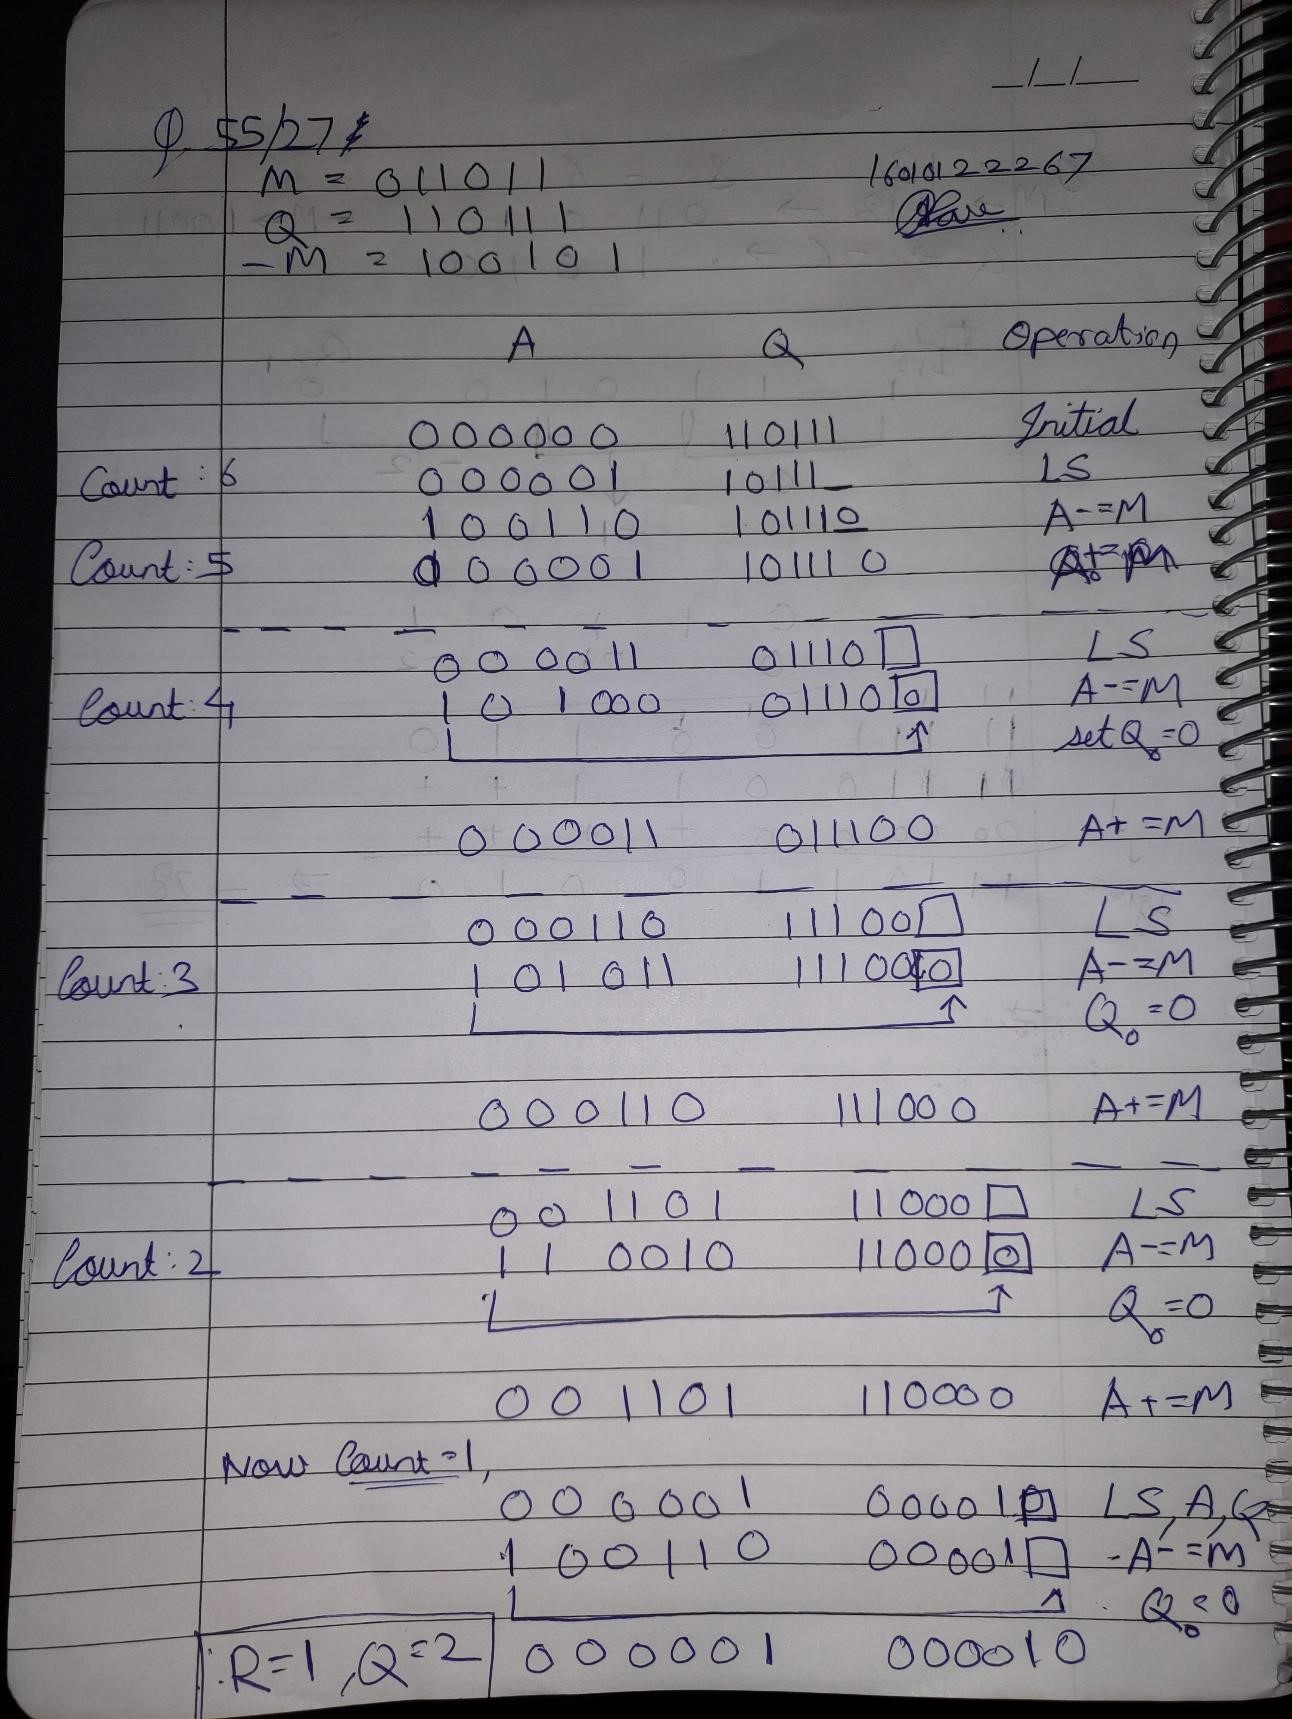 _/_/__
Q 55/27
M = 011011
16010122267
Q = 110111
-M = 100101
A Q Operation
000000 110111 Initial
Count: 6 000001 10111_ LS
100110 101110 A-=M
Count: 5 000001 101110
000011 01110□ LS
Count: 4 101000 011100 A-=M
set Q₀=0
000011 011100 A+=M
000110 11100□ LS
Count: 3 101011 111000 A-=M
Q₀=0
000110 111000 A+=M
001101 11000□ LS
Count: 2 110010 110000 A-=M
Q₀=0
001101 110000 A+=M
Now Count=1,
000001 00001 LS, A, Q
100110 00001□ -A-=M
Q₀=0
R=1, Q=2 000001 000010